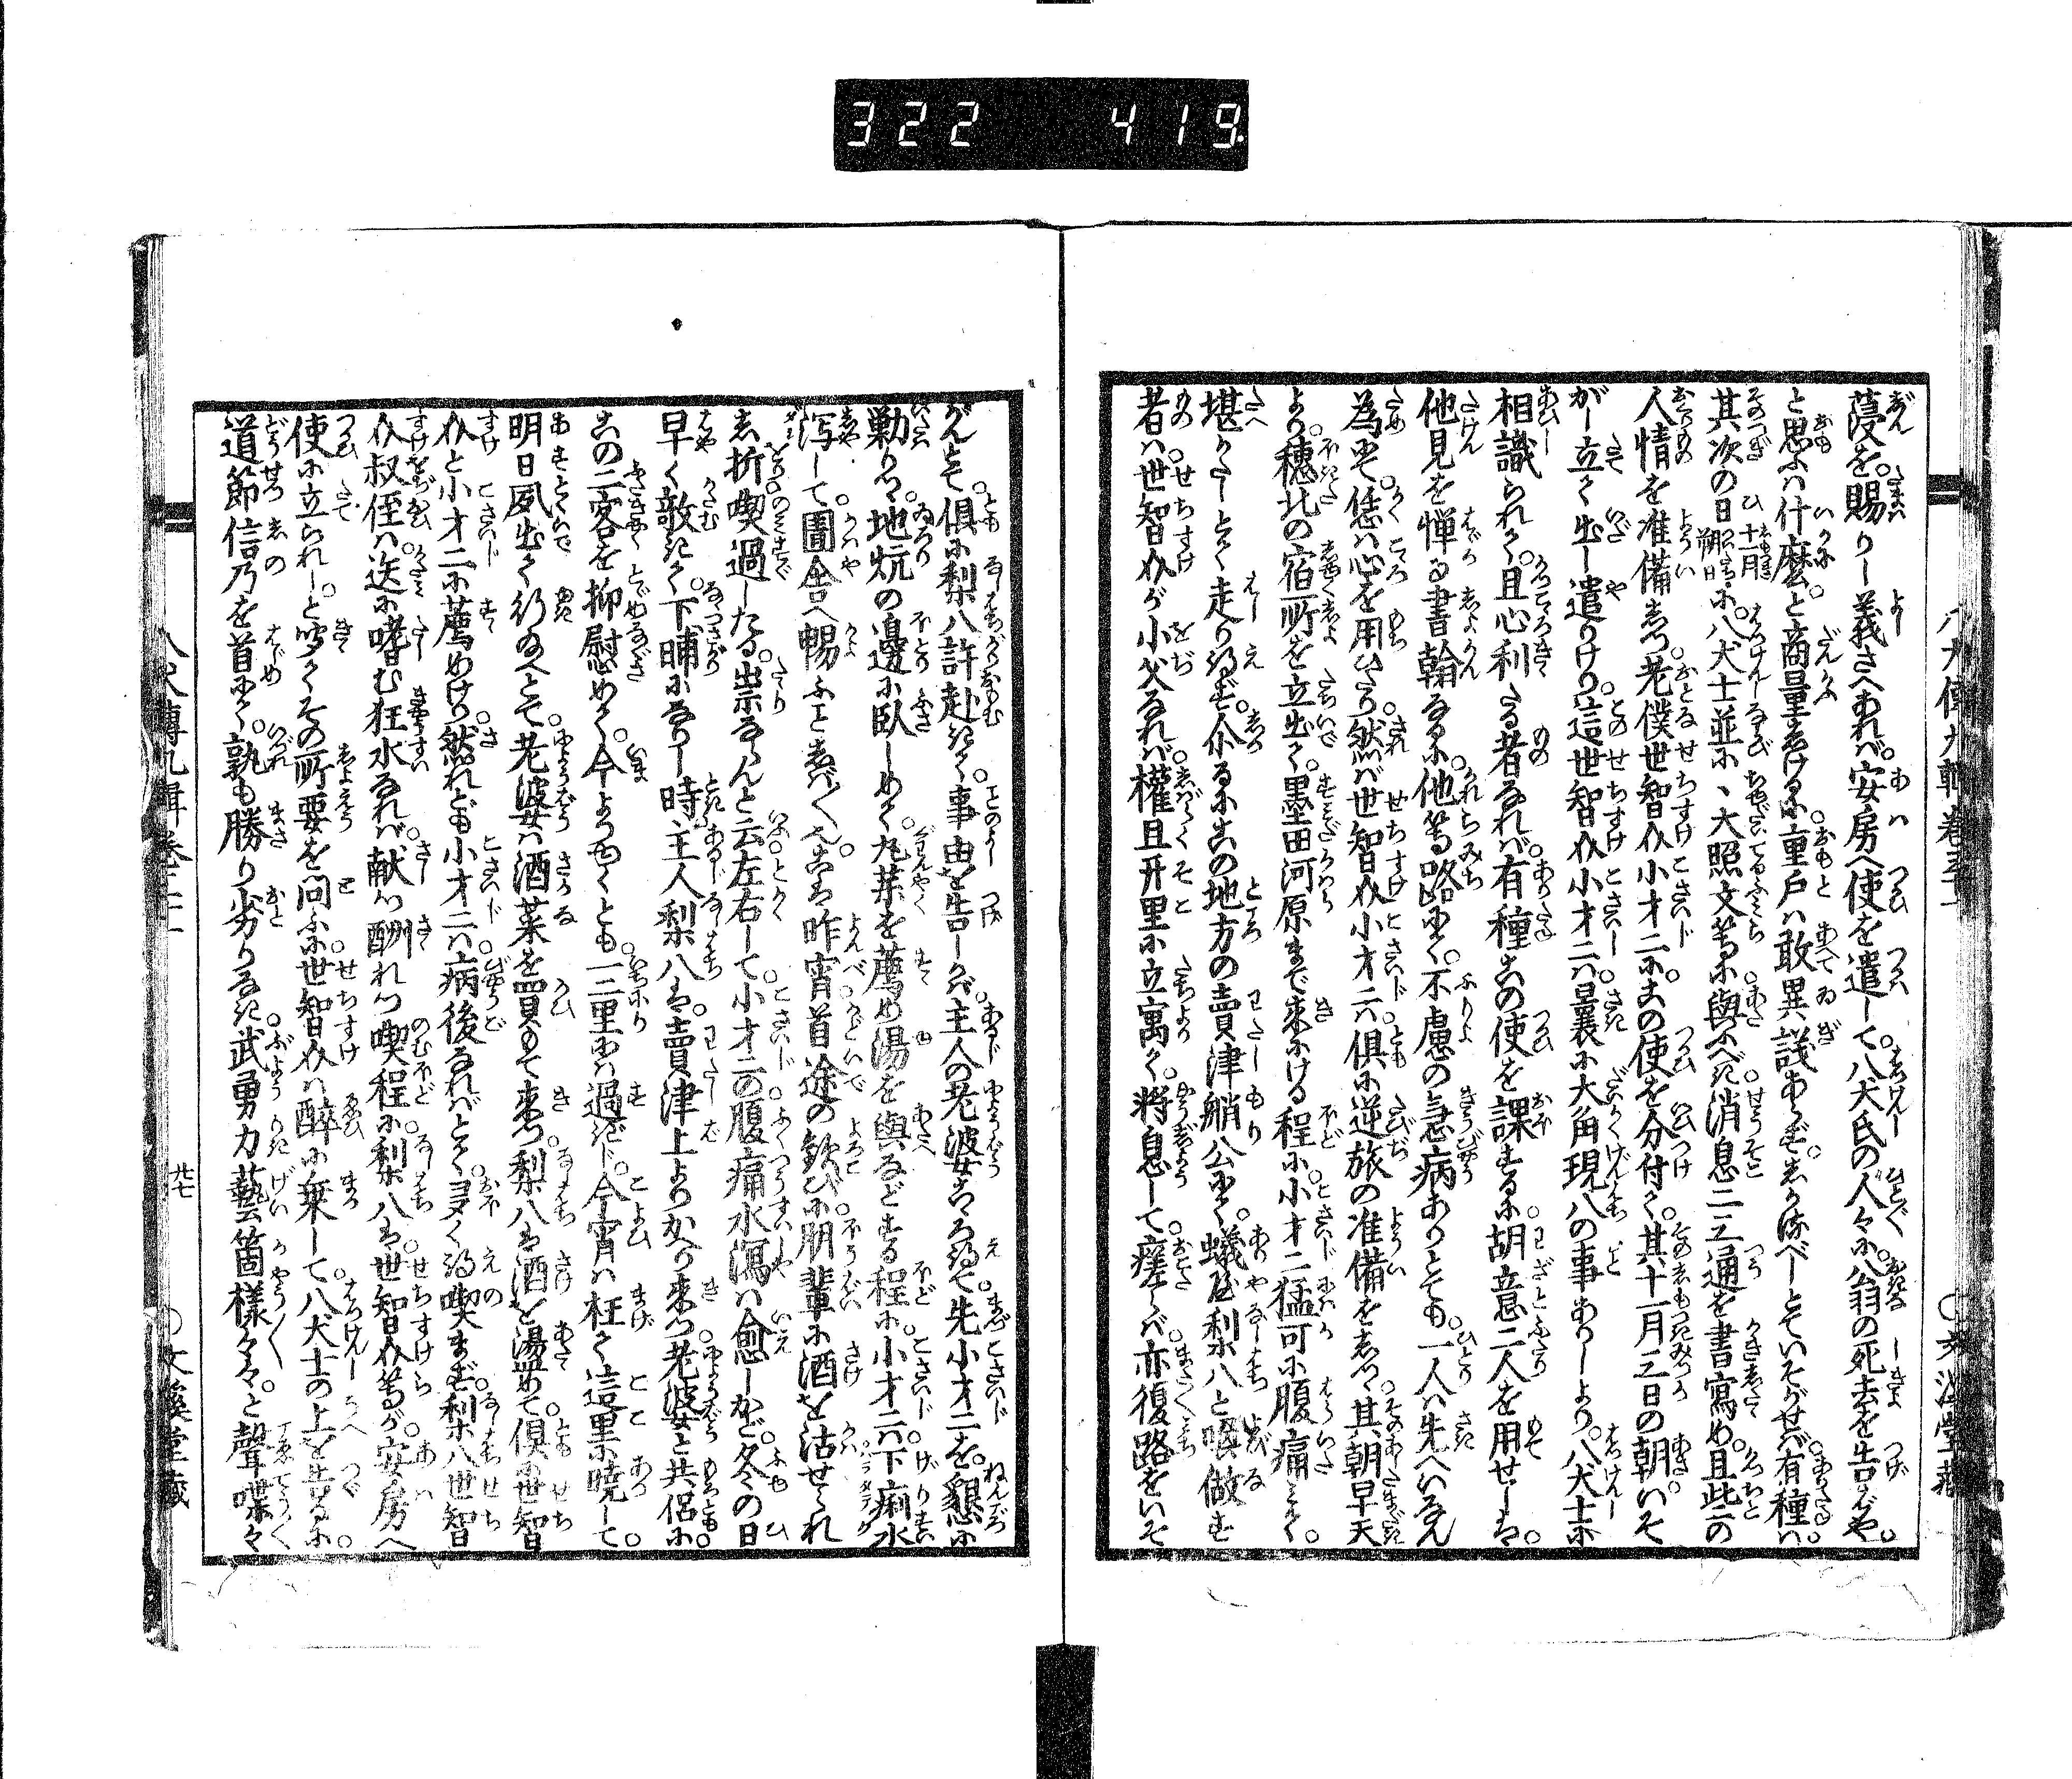 322 419
蓡を。賜りし義さへあれば。安房へ使を遣して。八犬氏の人々に。翁の死去を告げばや。
と思ふは什麼。と商量しける。に重戸は敢異議あらず。しかるべしとていそがせば。有種は。
其次の日十一月朔日に。八犬士並に、大照文等に與ふべき消息二三通を書寫め。且此一の
人情を准備しつ。老僕世智介小才二に。この使を分付て。其十一月三日の朝。いそ
がし立て出し遣りけり。這世智介小才二は。曩に大角現八の事ありしより。八犬士に
相識られて。且心利たる者なれば。有種この使を課するに。胡意二人を用せしは。
他見を憚る書翰なるに。他郷の路にて。不慮の急病ありとても。一人は先へいなん
為にて。恁は心を用ひたり。然ば世智介小才二は。俱に逆旅の准備をしつ。其朝早天
より。穂北の宿所を立出て。墨田河原まで來にける程に。小才二猛可に腹痛みて。
堪がたしとて走り得ず。介るにこの地方の賣津艄公にて。蟻屋利八と喚做す
者は。世智介が小父なれば。權且那里に立寓て。將息して。瘥らば。亦復路をいそ
がんとて。俱に梨八許赴きて。事由を告しかば。主人の老婆こゝろ得て。先小才二を。懇に
勦りつ。地炕の邊に臥しめて。丸藥を薦め湯を與などする程に。小才二は。下痢水
瀉して。圊舎へ暢ふこと。しば〳〵也。こは昨宵首途の歓びに。朋輩に酒を沽せられ
しを折喫過したる。祟ならんと云。左右して。小才二の腹痛水瀉は愈しかど。冬の日
早く敲きて。下晡になりし時。主人梨八は。賣津上よりかへり來つ。老婆と共侶に。
この二客を抑慰めて。今よりゆくとも。一二里には過ぎじ。今宵は枉て這里に曉して。
明日夙出て行ねとて。老婆は酒菜を買もて來つ。梨八は酒を湯めて。俱に世智
介と小才二に薦めけり。然れども小才二は。病後なればとて。多く得喫まず。利八世智
介叔侄は。迭に嗜む狂水なれば。献つ酬れつ喫程に。利八は世智介等が。安房へ
使に立られし。と聞てその所要を問ふに。世智介は醉に乗して。八犬士の上を告るに。
道節信乃を首にて。孰も勝り劣りなき。武勇力藝箇様々々。と聲喋々
八犬傳九輯卷
廿七
文溪堂藏